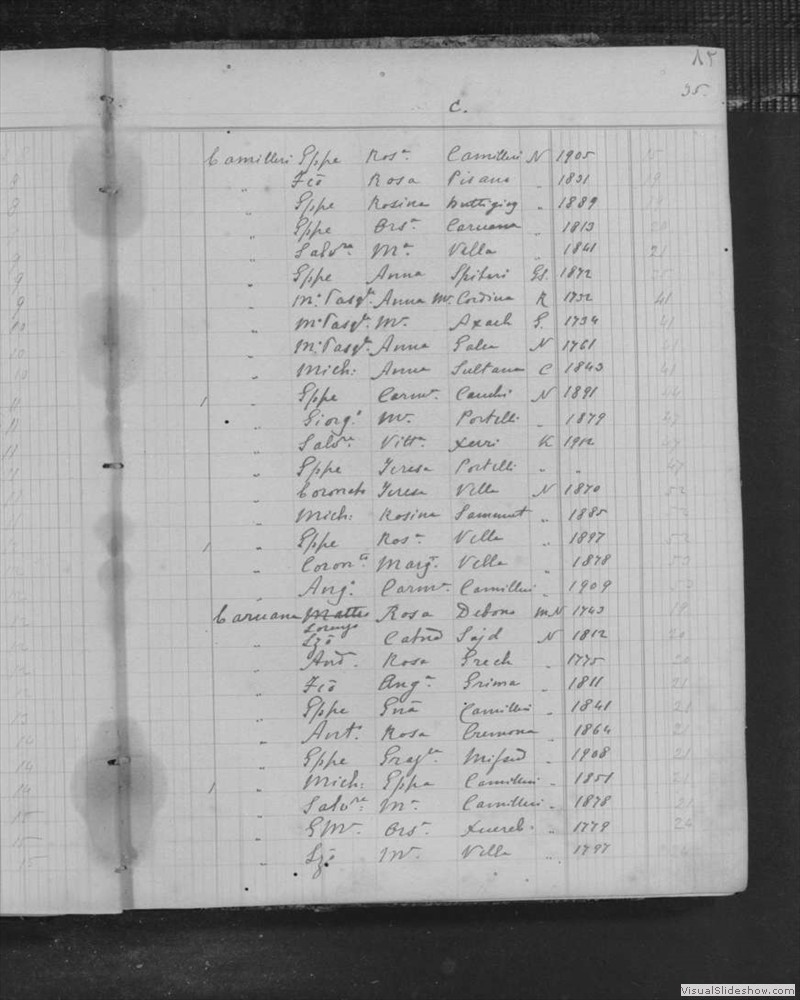 15
35.
C.
Camilleri Gppe Rosa. Camilleri N 1905 15
„ Fco Rosa Pisano „ 1831 19
„ Gppe Rosina Buttigieg „ 1889 19
„ Gppe Orsa. Caruana „ 1813 20
„ Salvre. Ma. Vella „ 1841 21
„ Gppe Anna Spiteri Gs. 1872 25
„ Ma. Pasqle. Anna Ma. Cordina R 1732 41
„ Ma Pasqle. Ma. Axach G. 1734 41
„ Ma Pasqle. Anna Galea N 1761 41
„ Mich: Anna Sultana C 1843 41
1 „ Gppe Carma. Cauchi N 1891 44
„ Giorgo. Ma. Portelli „ 1879 47
„ Salvre. Vitta. Xerri K 1912 47
„ Gppe Teresa Portelli „ „ 47
„ Coronato Teresa Vella N 1870 52
„ Mich: Rosina Sammut „ 1885 52
1 „ Gppe Rosa. Vella „ 1897 52
„ Coronto. Marga. Vella „ 1878 53
„ Ango. Carma. Camilleri „ 1909 53
Caruana Matteo Rosa Debono MN 1743 19
Lorenzo
„ Lzo Catna Sajd N 1812 20
„ And. Rosa Grech „ 1775 20
„ Fco Anga. Grima „ 1811 21
„ Gppe Gna Camilleri „ 1841 21
„ Ant. Rosa Cremona „ 1864 21
„ Gppe Grazla. Mifsud „ 1908 21
1 „ Mich: Gppa Camilleri „ 1851 21
„ Salvre: Ma. Camilleri „ 1878 21
„ GMa. Orsa. Xuereb. „ 1779 24
„ Lzo Ma. Vella „ 1797
VisualSlideshow.com